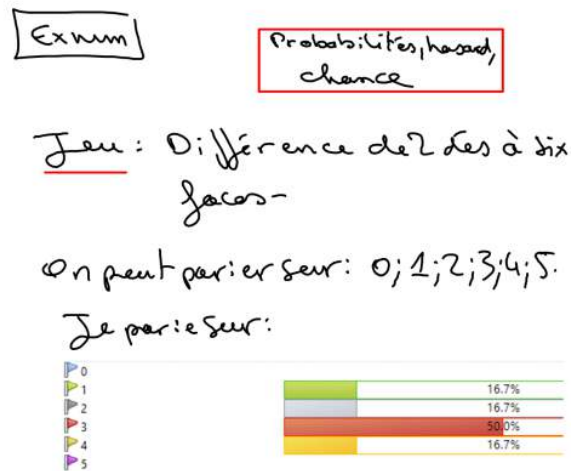 Exnum
Probabilités, hasard,
chance
Jeu : Différence de 2 dés à six
faces-
On peut parier sur : 0; 1; 2; 3; 4; 5.
Je parie sur :
0
1 16.7%
2 16.7%
3 50.0%
4 16.7%
5